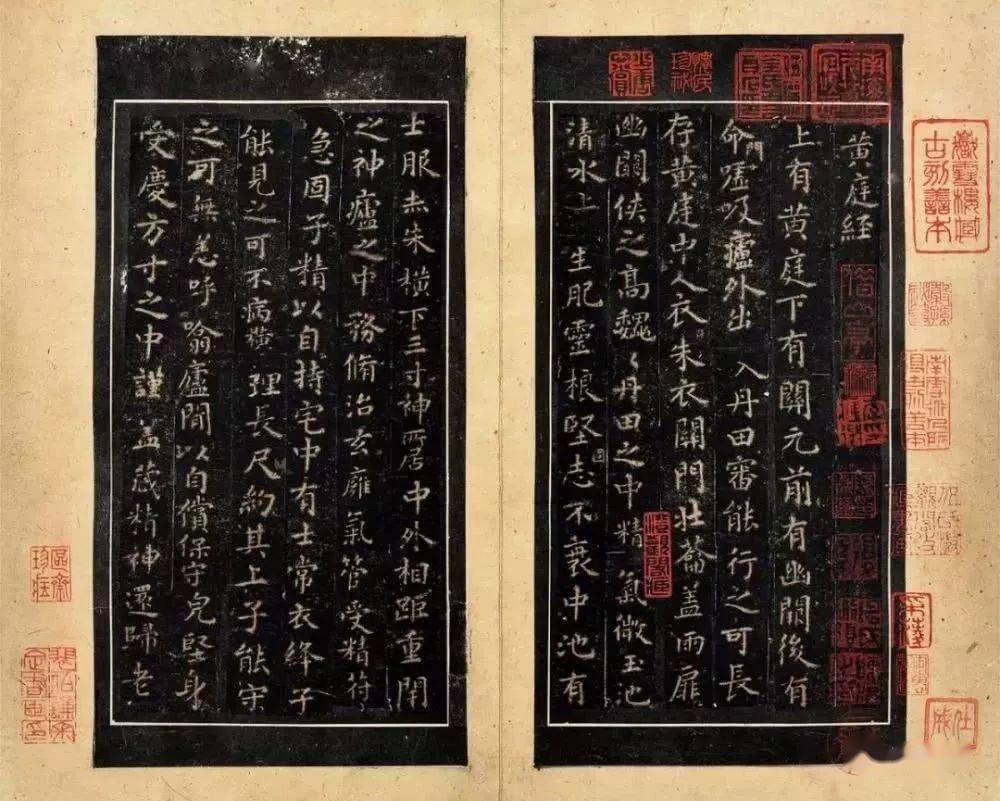 黄庭経
上有黄庭下有關元前有幽闕後有
命門噓吸廬外出入丹田審能行之可長
存黄庭中人衣朱衣關門壯蘥盖兩扉
幽闕侠之高魏〻丹田之中精氣微玉池
清水上生肥靈根堅志不衰中池有
士服赤朱横下三寸神所居中外相距重閉
之神廬之中務脩治玄廱氣管受精符
急固子精以自持宅中有士常衣绛子
能見之可不病横理長尺約其上子能守
之可無恙呼噏廬間以自償保守皃堅身
受慶方寸之中謹盖藏精神還歸老
古刻善本
珍藏